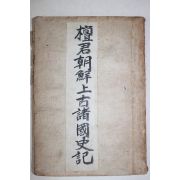 檀君朝鮮上古諸國史記